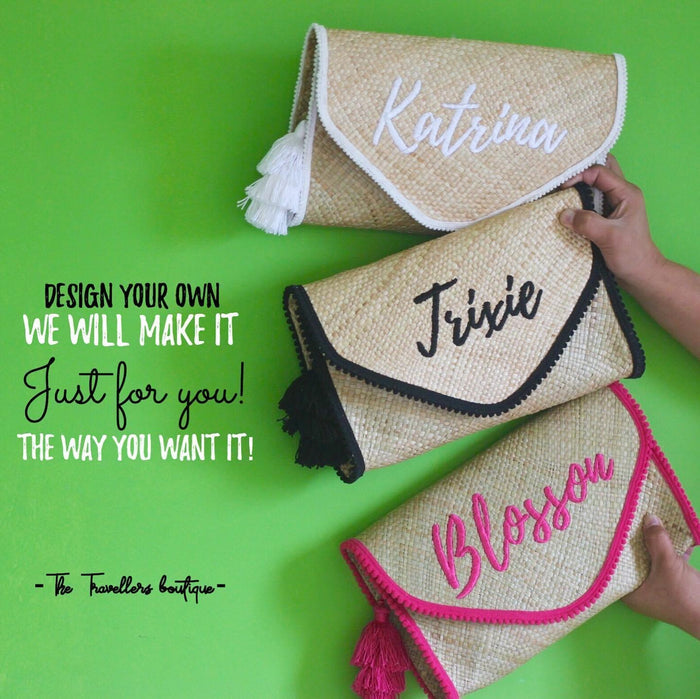 Katrina
Trixie
Blosson
DESIGN YOUR OWN
WE WILL MAKE IT
Just for you!
THE WAY YOU WANT IT!
- The Travellers boutique -